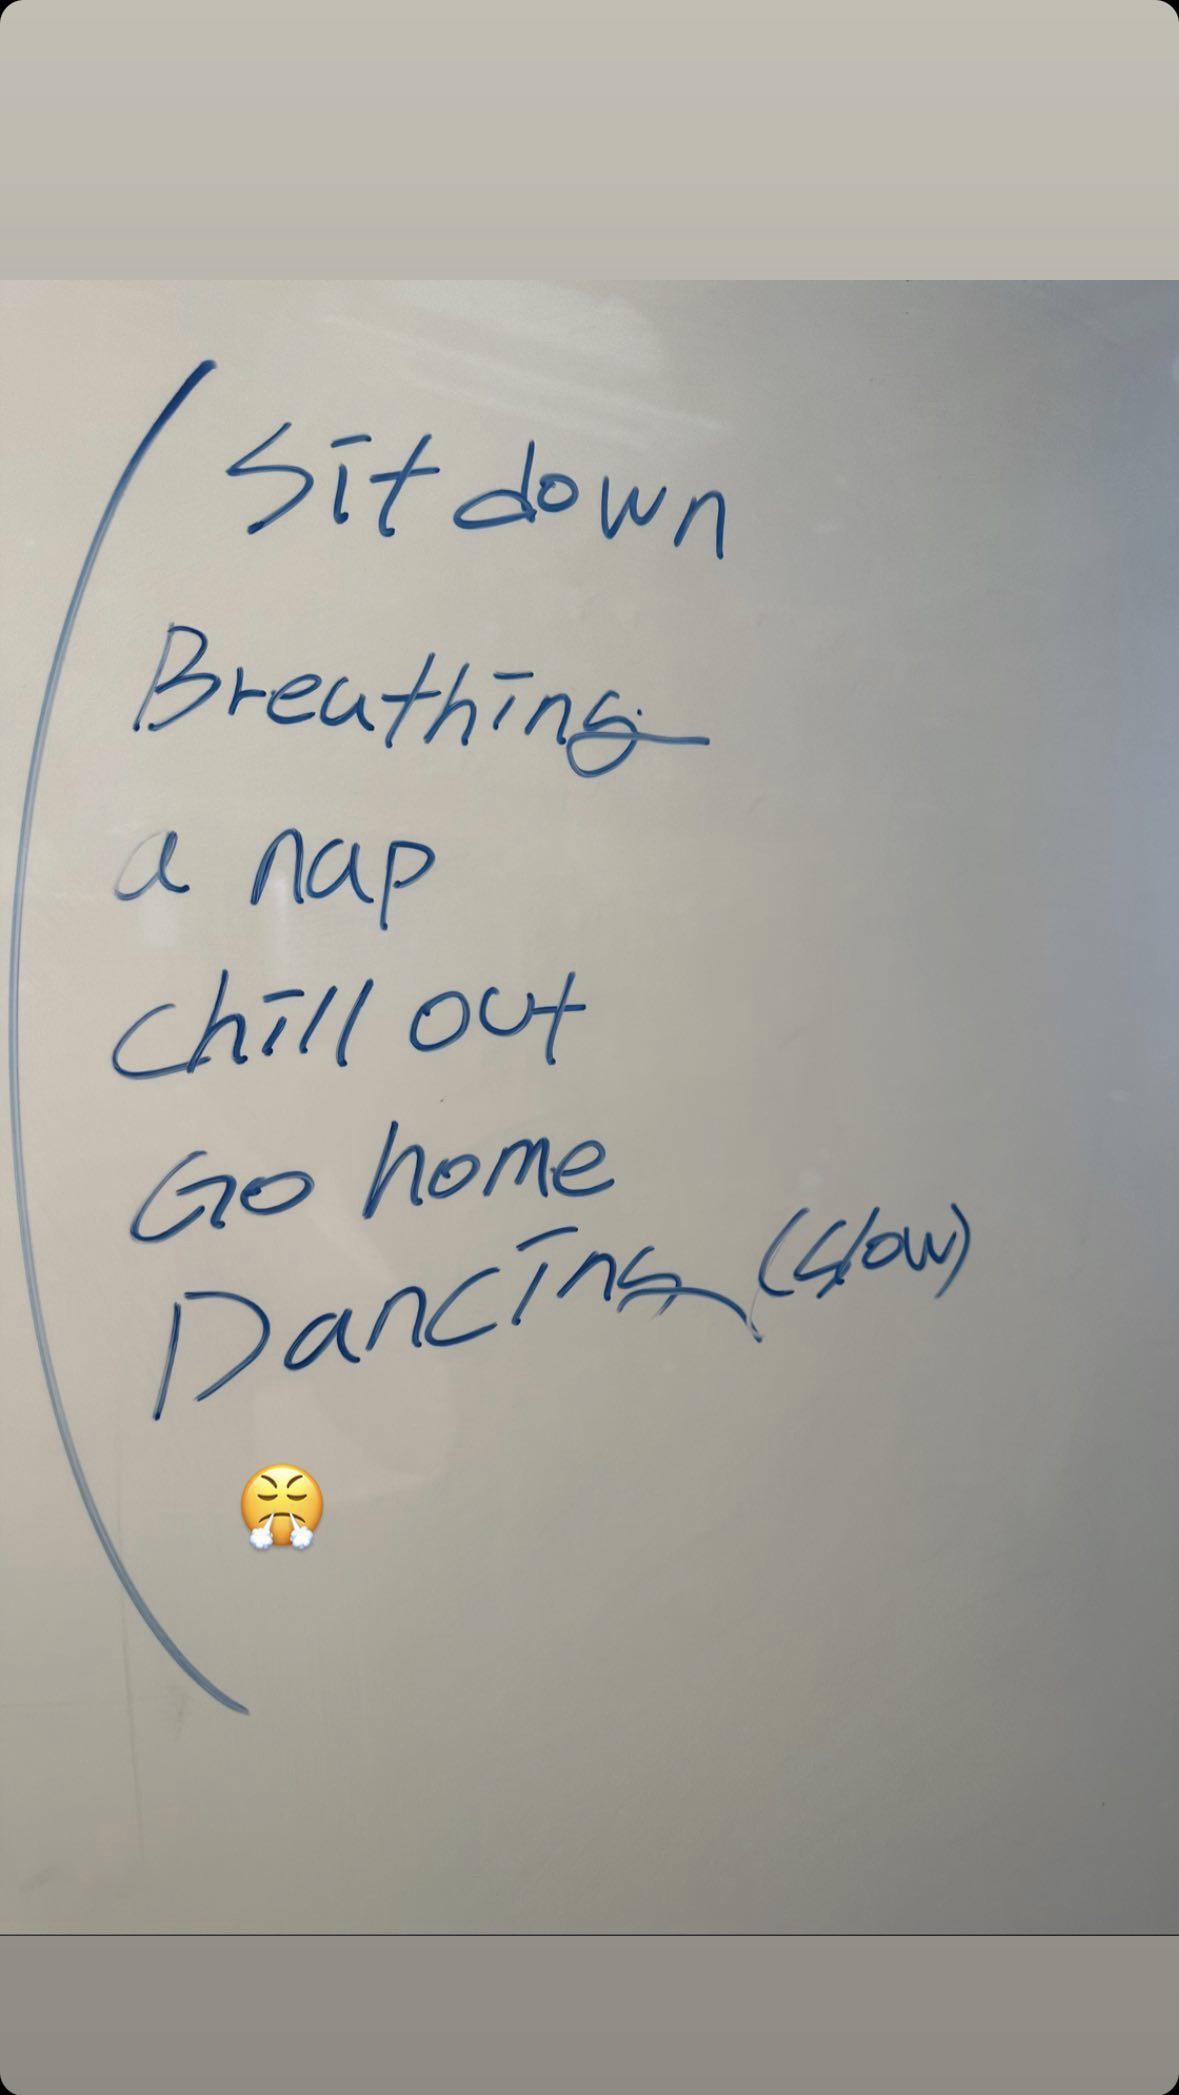 Sit down
Breathing
a nap
chill out
Go home
Dancing (slow)